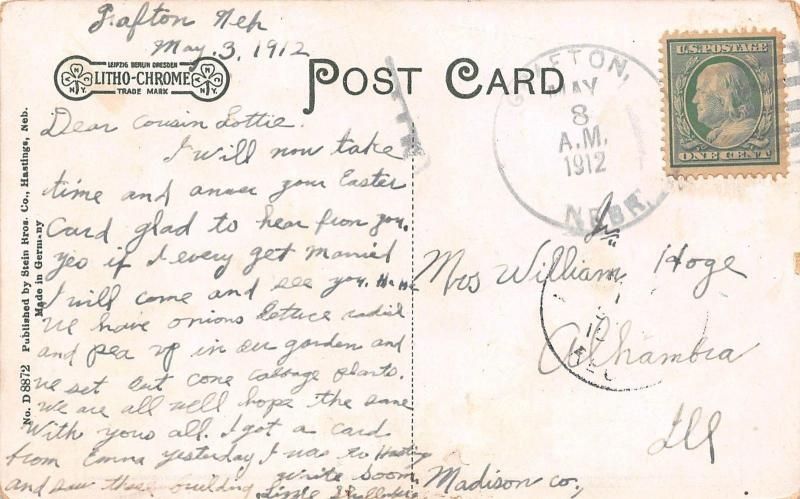 Grafton Neb
May. 3, 1912
LEIPZIG BERLIN DRESDEN
LITHO-CHROME
TRADE MARK
N.Y.
N.Y.
POST CARD
GRAFTON,
MAY
8
A.M.
1912
NEBR.
U.S. POSTAGE
ONE CENT
No. D 8872 Published by Stein Bros. Co., Hastings, Neb.
Made in Germany
Dear Cousin Lottie.
I will now take
time and answer your Easter
Card glad to hear from you.
yes if I every get married
I will come and see you. Ha Ha
we have onions lettuce radish
and pea up in our garden and
we set out cabbage plants.
We are all well hope the same
With yous all. I got a card
from Emma yesterday I was to Hasting
and saw these building write soon
Jr
Mrs William Hoge
Alhambra
Ill
Madison co,